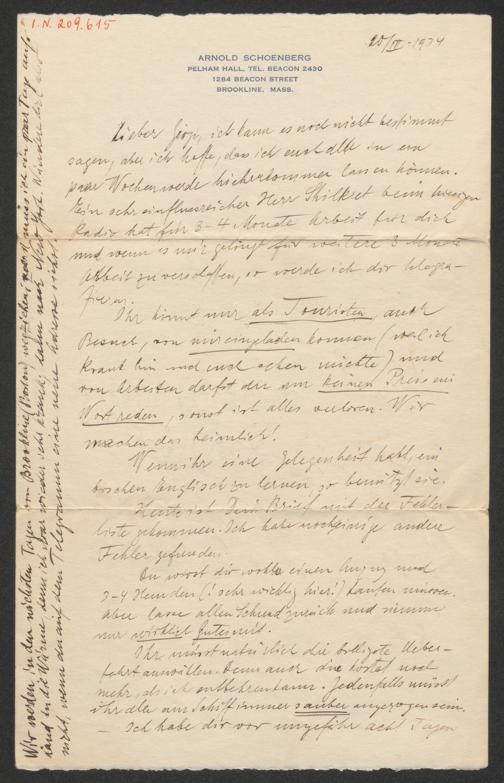 I.N. 209.615
20/II-1934
ARNOLD SCHOENBERG
PELHAM HALL, TEL. BEACON 2430
1284 BEACON STREET
BROOKLINE, MASS.
Lieber Görgi, ich kann es noch nicht bestimmt
sagen, aber ich hoffe, dass ich euch alle in ein
paar Wochen werde hieherkommen lassen können.
Ein sehr einflussreicher Herr Shilkret beim hiesigen
Radio hat für 3-4 Monate Arbeit für dich
und wenn es mir gelingt für weitere 3 Monate
Arbeit zu verschaffen, so werde ich dir telegra-
fieren.
Ihr könnt nur als Touristen, auch
Besuch, von mir eingeladen kommen (weil ich
krank bin und euch sehen möchte) und
von Arbeiten darfst du um keinen Preis ein
Wort reden, sonst ist alles verloren. Wir
machen das heimlich!
Wenn ihr eine Gelegenheit habt, ein
bischen Englisch zu lernen so benützt sie.
Heute ist Dein Brief mit der Fehler-
liste gekommen. Ich habe noch einige andere
Fehler gefunden.
Du wirst dir wohl einen Anzug und
3-4 Hemden (! sehr wichtig hier!) kaufen müssen.
Aber lasse allen Schund zurück und nimm
nur wirklich Gutes mit.
Ihr müsst natürlich die billigste Ueber-
fahrt auswählen. Denn auch die kostet noch
mehr, als ich entbehren kann. Jedenfalls müsst
ihr alle am Schiff immer sauber angezogen sein.
— Ich habe dir vor ungefähr acht Tagen
Wir werden in den nächsten Tagen von Brookline (Boston) wegziehen, zuerst muss ich ein paar Tage aufs
Land in die Wärme, denn ich war wieder sehr krank; dann nach New York. Wundere dich
nicht, wenn du auf dem Telegramm eine neue Adresse siehst.